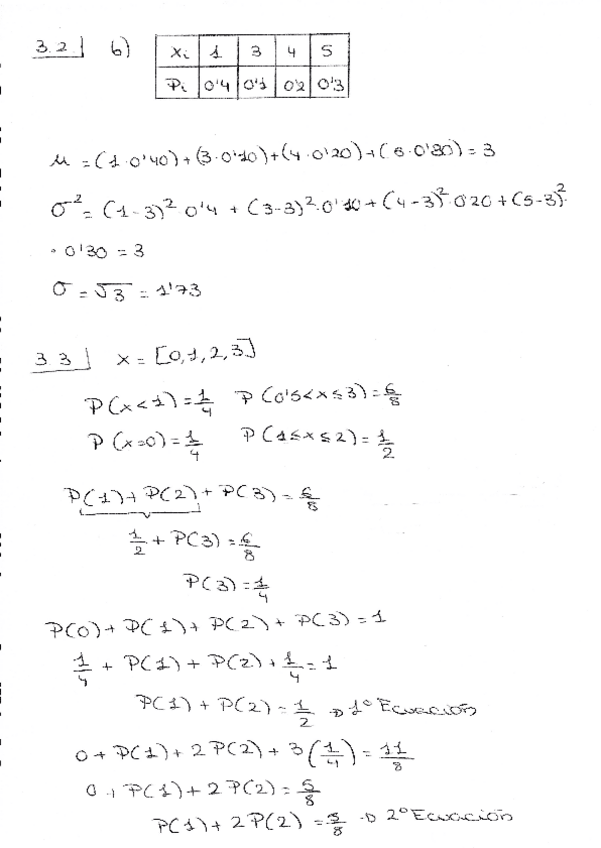 3.2 b)
xi 1 3 4 5
Pi 0'4 0'1 0'2 0'3
μ = (1·0'40) + (3·0'10) + (4·0'20) + (5·0'30) = 3
σ² = (1-3)²·0'4 + (3-3)²·0'10 + (4-3)²·0'20 + (5-3)²·
· 0'30 = 3
σ = √3 = 1'73
3.3 x = [0,1,2,3]
P(x<1) = 1/4 P(0'5<x≤3) = 6/8
P(x=0) = 1/4 P(1≤x≤2) = 1/2
P(1) + P(2) + P(3) = 6/8
1/2 + P(3) = 6/8
P(3) = 1/4
P(0) + P(1) + P(2) + P(3) = 1
1/4 + P(1) + P(2) + 1/4 = 1
P(1) + P(2) = 1/2 → 1º Ecuación
0 + P(1) + 2P(2) + 3(1/4) = 11/8
0 + P(1) + 2P(2) = 5/8
P(1) + 2P(2) = 5/8 → 2º Ecuación